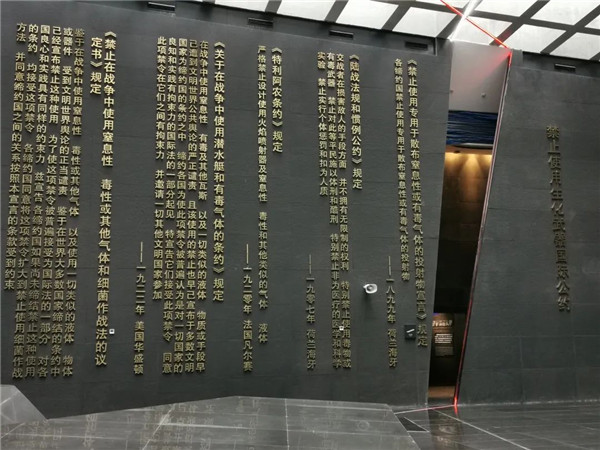 禁止使用生化武器国际公约
《禁止使用专用于散布窒息性或有毒气体的投射物宣言》规定
各缔约国禁止使用专用于散布窒息性或有毒气体的投射物
——一八九九年 荷兰海牙
《陆战法规和惯例公约》规定
交战者在损害敌人的手段方面 并不拥有无限制的权利 特别禁止使用毒物或
有毒武器 禁止对此等平民施以体刑和酷刑 特别禁止非为医疗的医学和科学
实验 禁止实行个体惩罚和扣为人质
——一九零七年 荷兰海牙
《特利阿农条约》规定
严格禁止设计使用火焰喷射器及窒息性 毒性和其他类似的气体 液体
——一九二零年 法国凡尔赛
《关于在战争中使用潜水艇和有毒气体的条约》规定
在战争中使用窒息性 有毒及其他瓦斯 以及一切类似的液体 物质或手段早
已遭到文明世界公共舆论的严正谴责 且该使用的禁止也早已宣布于多数文明
国家缔约各国的条约中 缔约各国为使此项禁令被普遍认为是对一切国家的
良知和实践有拘束力的国际法的一部分起见 特宣告它们接受此项禁令 同意
此项禁令在它们之间有拘束力 并邀请一切其他文明国家参加
——一九二二年 美国华盛顿
《禁止在战争中使用窒息性 毒性或其他气体和细菌作战法的议
定书》规定
鉴于在战争中使用窒息性 毒性或其他气体 以及使用一切类似的液体 物体
或器件 受到文明世界舆论的正当谴责 鉴于在世界大多数国家缔结的条约中
已经宣布禁止这种使用 为了使这项禁令被普遍接受为国际法的一部分 对各
国良心和实践具有同样的约束力 兹宣告各缔约国如果尚未缔结禁止这种使用
的条约 均接受这项禁令 各缔约国同意将这项禁令扩大到禁止使用细菌作战
方法 并同意缔约国之间的关系按照本宣言的条款受到约束